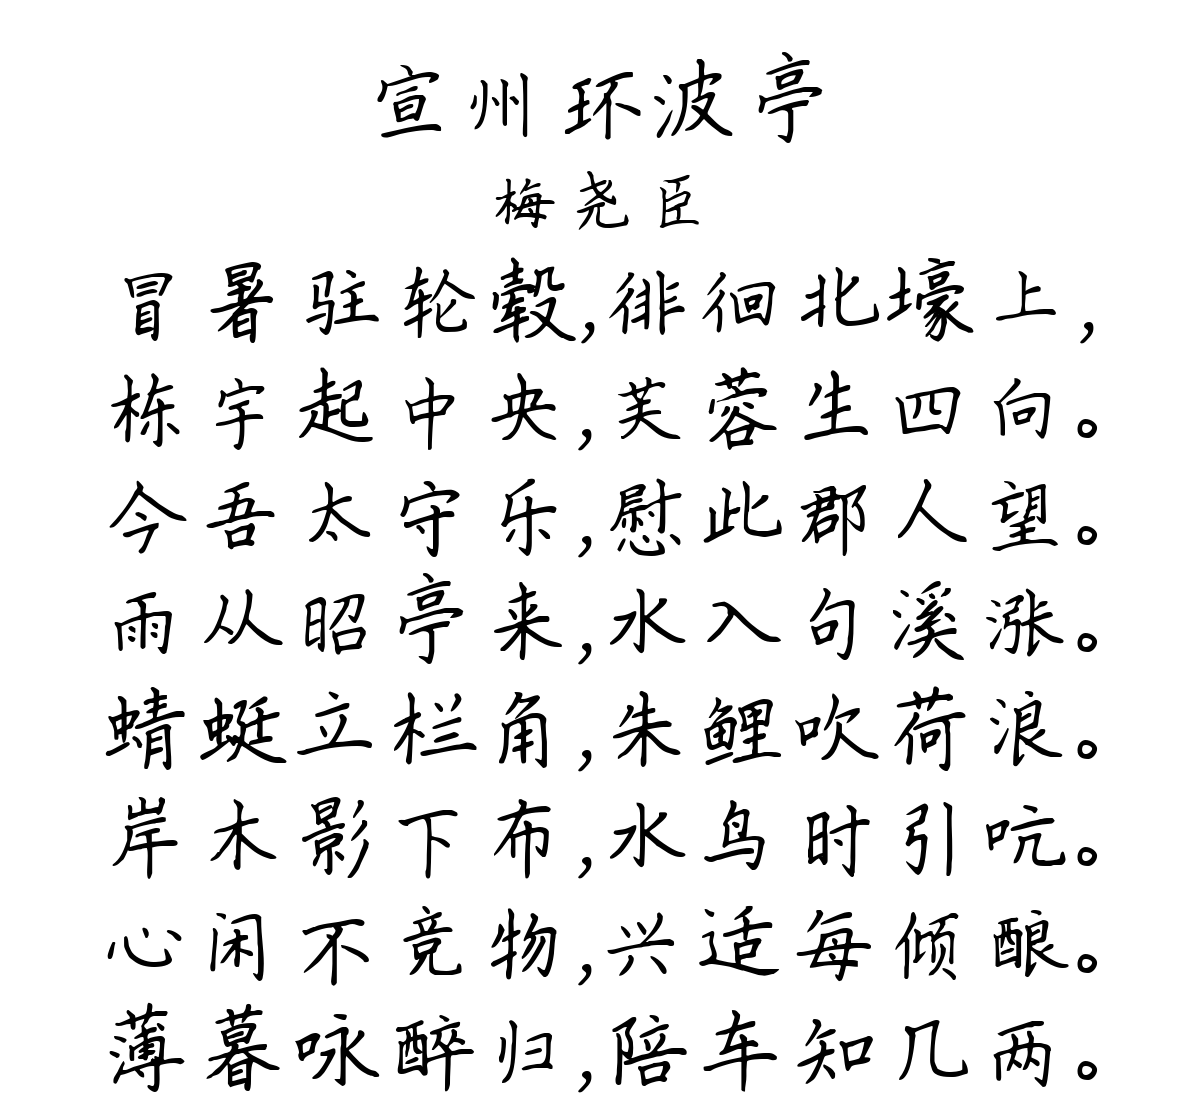 宣州环波亭
梅尧臣
冒暑驻轮毂,徘徊北壕上,
栋宇起中央,芙蓉生四向。
今吾太守乐,慰此郡人望。
雨从昭亭来,水入句溪涨。
蜻蜓立栏角,朱鲤吹荷浪。
岸木影下布,水鸟时引吭。
心闲不竞物,兴适每倾酿。
薄暮咏醉归,陪车知几两。